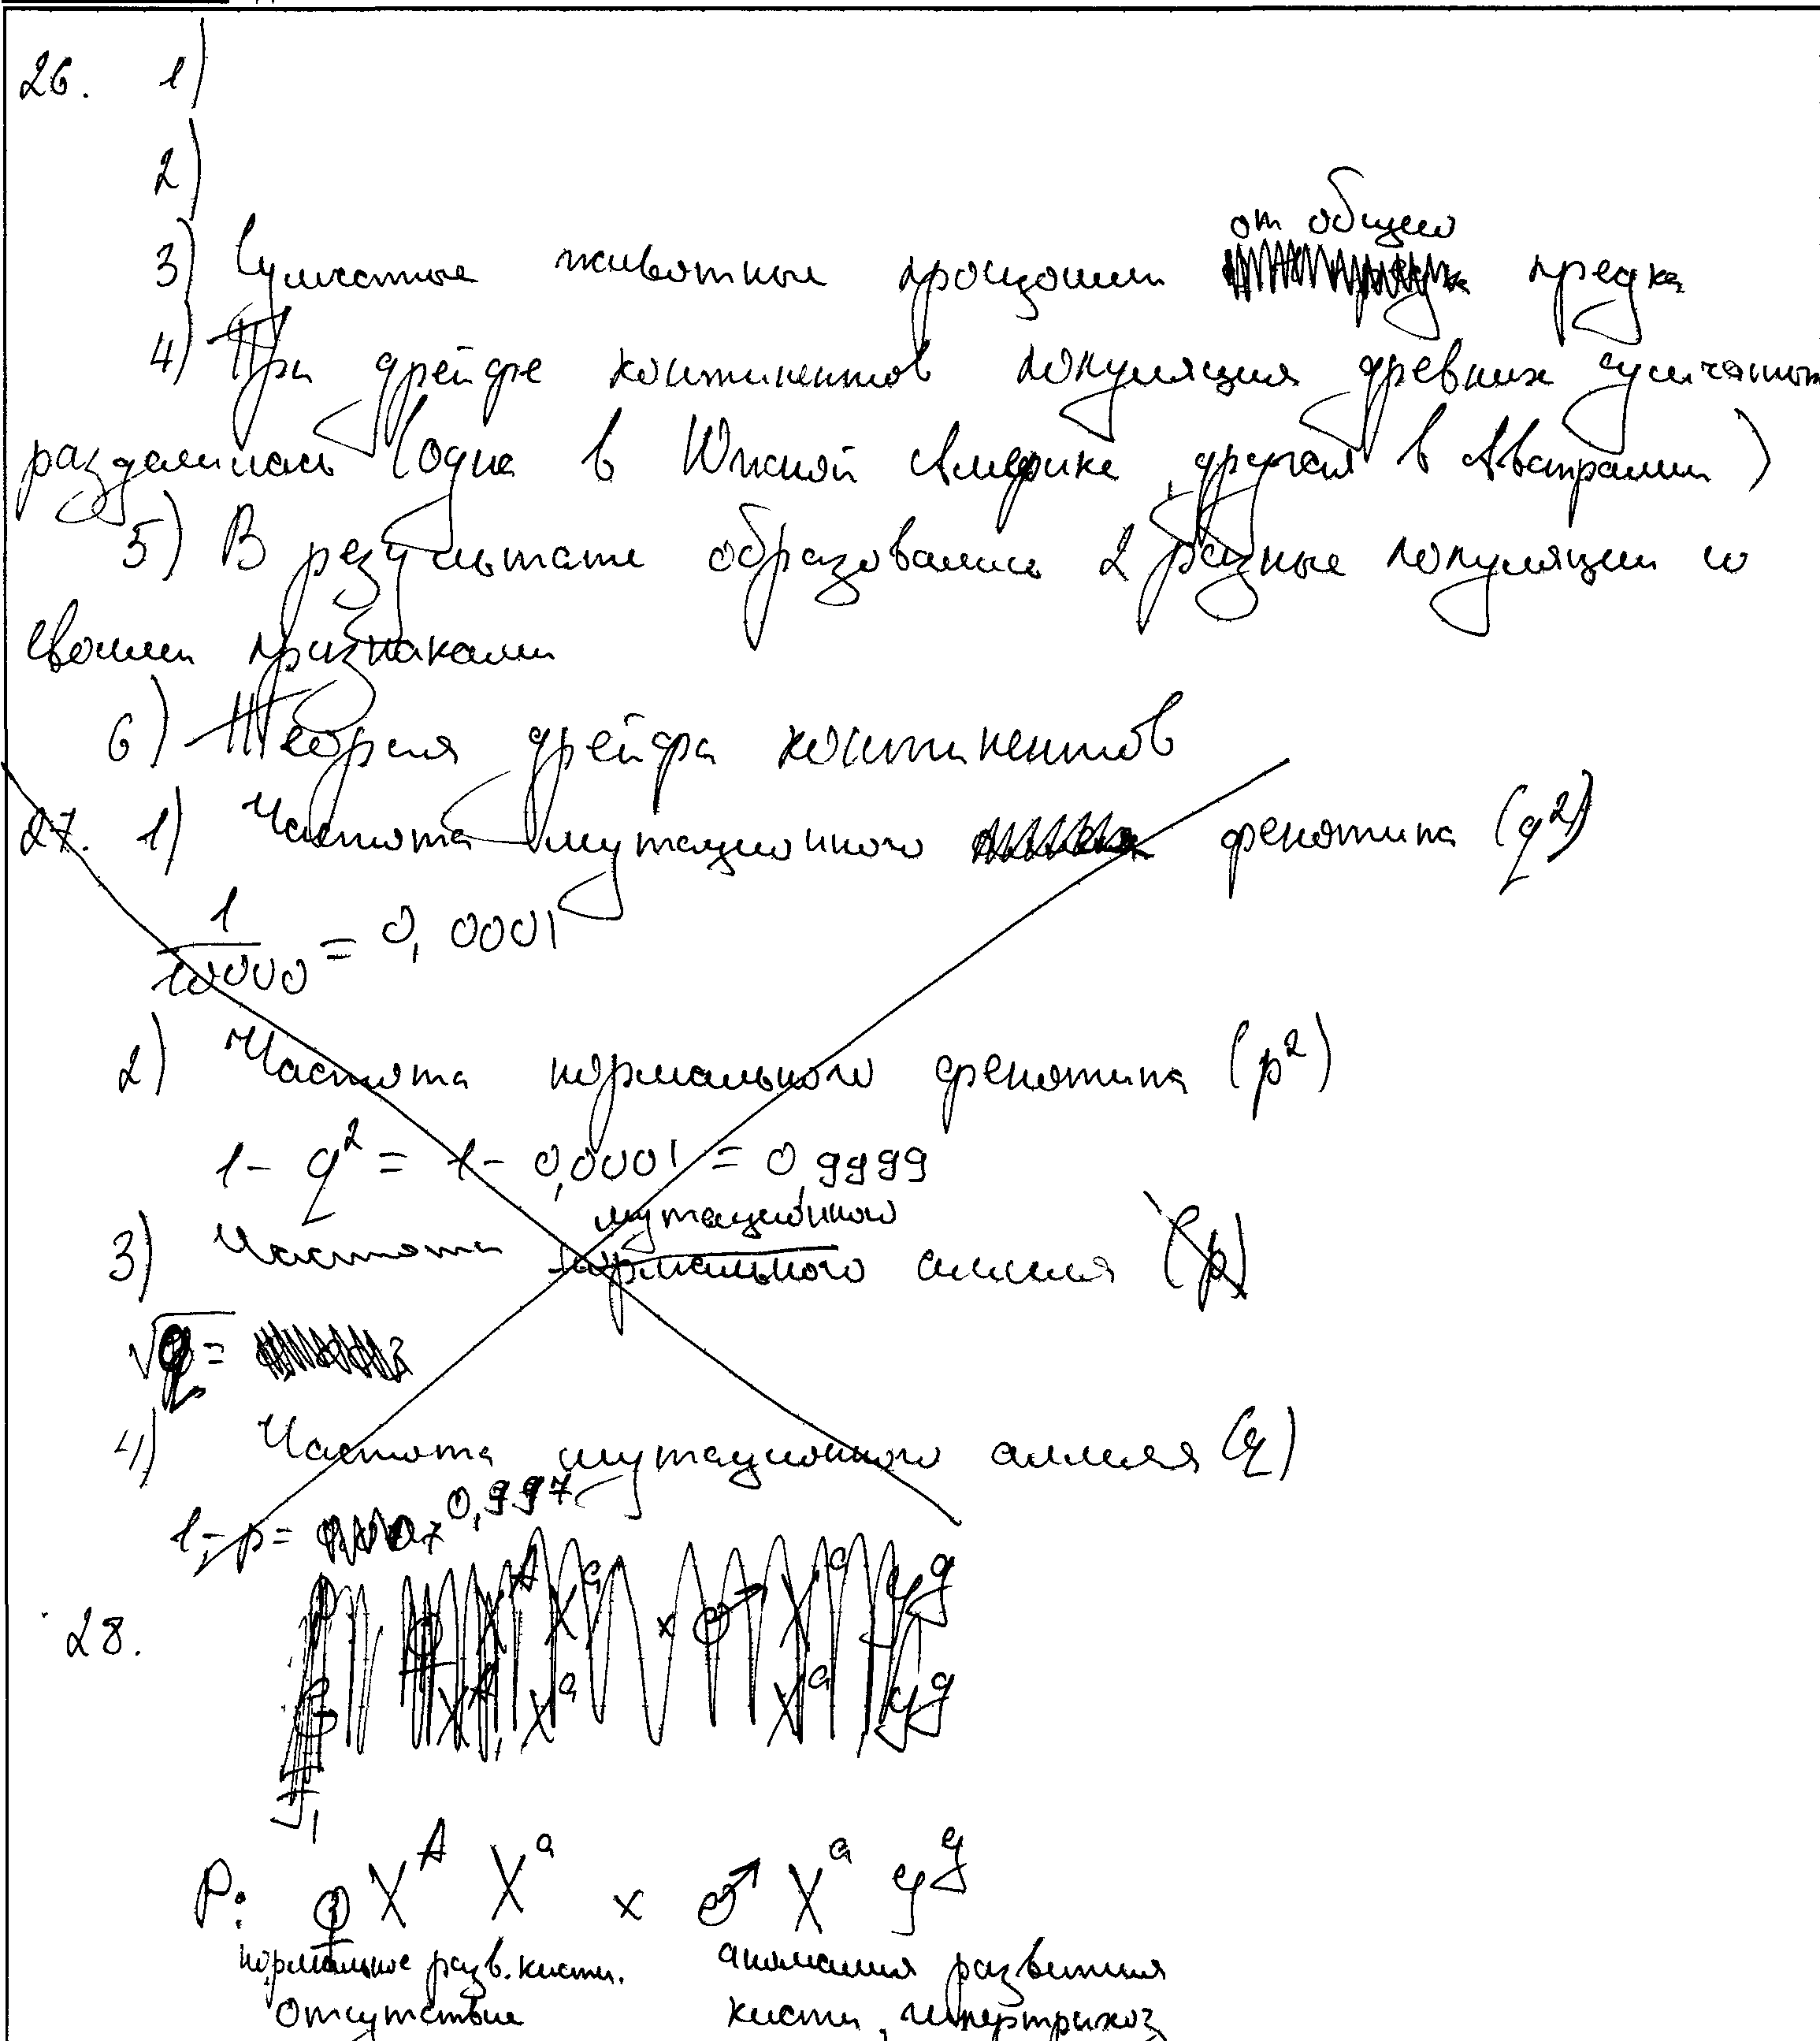 26. 1)
2)
от общего
3) Сумчатые животные произошли предка
4) При дрейфе континентов популяция древних сумчатых
разделилась (одна в Южной Америке, другая в Австралии)
5) В результате образовались 2 разные популяции со
своими признаками
6) Теория дрейфа континентов
27. 1) Частота мутационного фенотипа (q²)
1/10000 = 0,0001
2) Частота нормального фенотипа (p²)
1 - q² = 1 - 0,0001 = 0,9999
мутационного
3) Частота нормального аллеля (p)
√q =
4) Частота мутационного аллеля (q)
1 - p = 0,997
28.
X^A X^a x ♂ X^a y^g
X^A, X^a X^a, y^g
F₁
P: ♀ X^A X^a x ♂ X^a y^g
нормальное разв. кисти. аномалия развития
отсутствие кисти, гипертрихоз